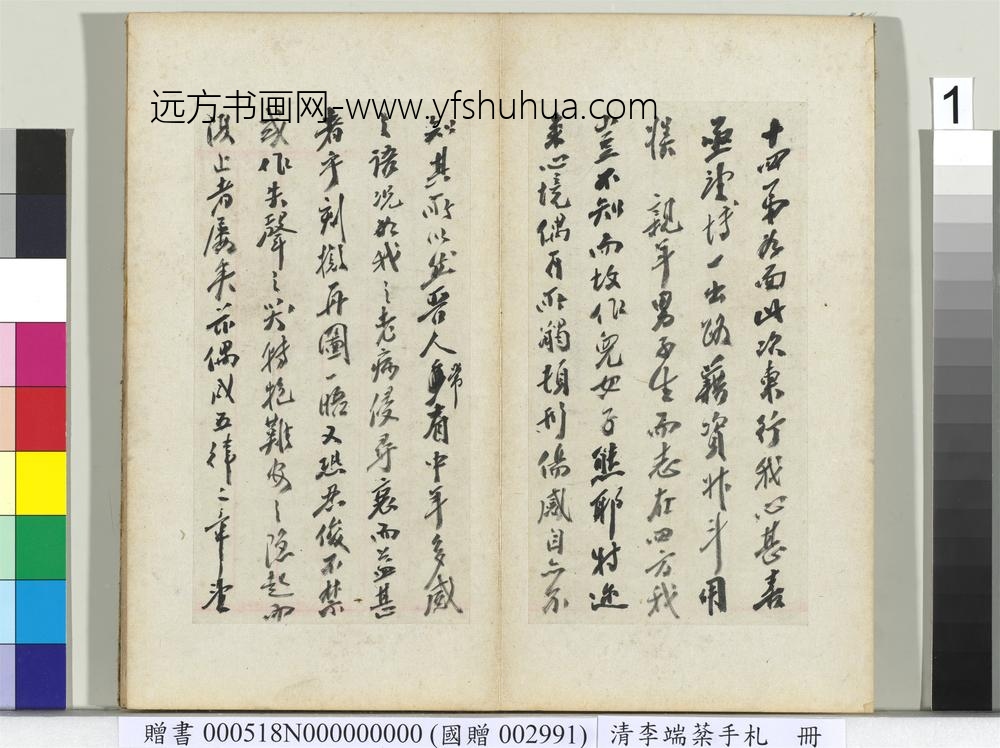 十四弟如面此次東行我心甚喜
亟望博一出路藉資升斗用
娛 親年男子生而志在四方我
豈不知而故作兒女子態耶特近
來心境偶有所觸頓形傷感自亦不
知其所以然晉人常有中年多感
之語況如我之老病侵尋衰而益甚
者乎刻擬再圖一晤又恐忍俊不禁
或作失聲之哭特抱難安之隱起而
復止者屢矣茲偶成五律二章望
远方书画网-www.yfshuhua.com
1
贈書 000518N000000000 (國贈 002991) 清李端棻手札 冊